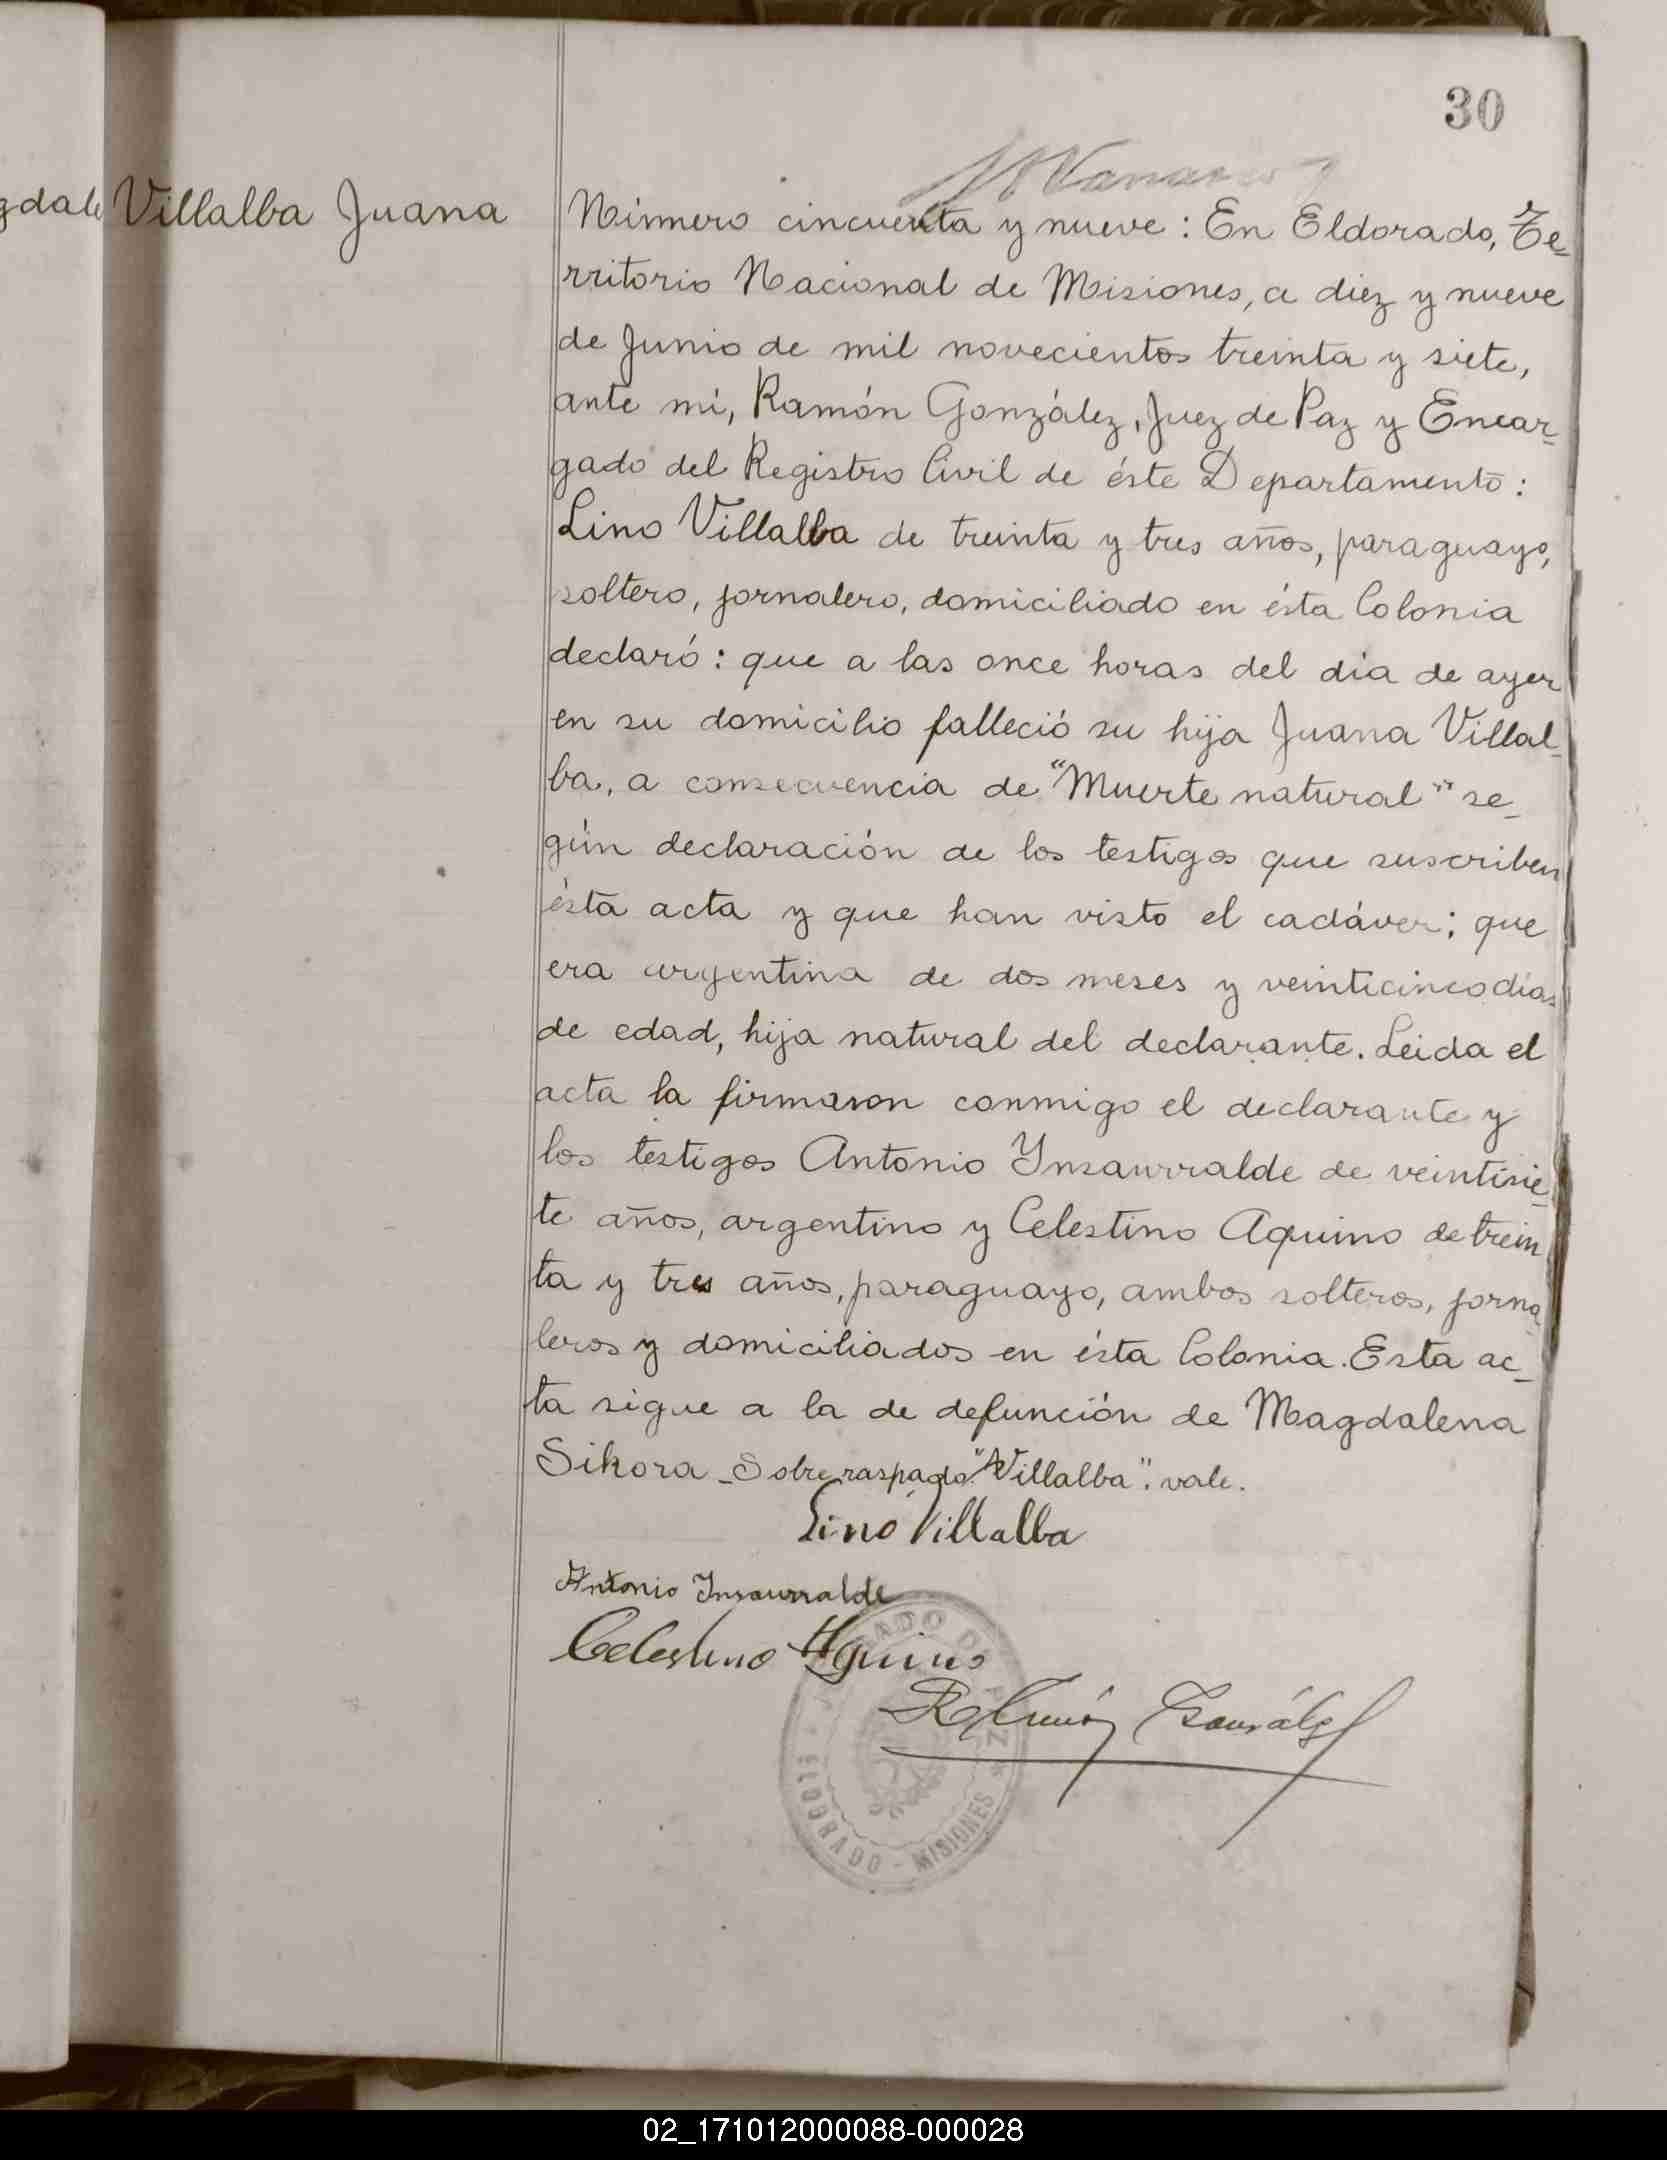 30
gdale
Villalba Juana
Número cincuenta y nueve: En Eldorado, Te-
rritorio Nacional de Misiones, a diez y nueve
de Junio de mil novecientos treinta y siete,
ante mí, Ramón González, Juez de Paz y Encar-
gado del Registro Civil de éste Departamento:
Lino Villalba de treinta y tres años, paraguayo,
soltero, jornalero, domiciliado en ésta Colonia
declaró: que a las once horas del día de ayer
en su domicilio falleció su hija Juana Villal-
ba, a consecuencia de "Muerte natural" se-
gún declaración de los testigos que suscriben
ésta acta y que han visto el cadáver; que
era argentina de dos meses y veinticinco días
de edad, hija natural del declarante. Leida el
acta la firmaron conmigo el declarante y
los testigos Antonio Ynsaurralde de veintisie-
te años, argentino y Celestino Aquino de trein
ta y tres años, paraguayo, ambos solteros, jorna-
leros y domiciliados en ésta Colonia. Esta ac-
ta sigue a la de defunción de Magdalena
Sikora - Sobre raspado: "Villalba": vale.
Lino Villalba
Antonio Insaurralde
Celestino Aquino
Ramón González
JUZGADO DE PAZ
ELDORADO - MISIONES
02_171012000088-000028